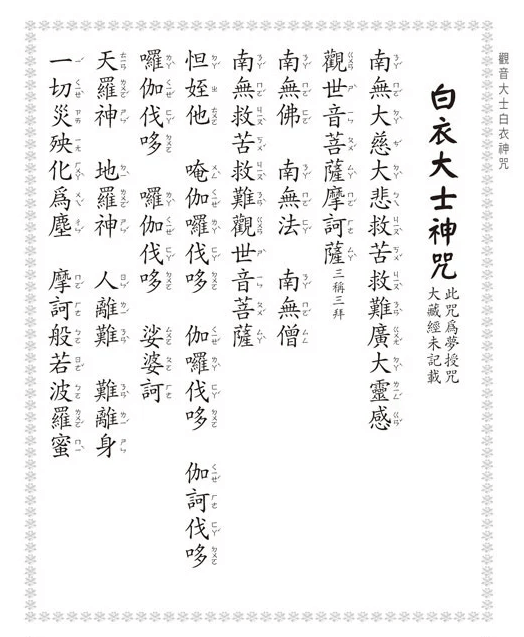 觀音大士白衣神咒
白衣大士神咒
此咒爲夢授咒
大藏經未記載
南無大慈大悲救苦救難廣大靈感
觀世音菩薩摩訶薩 三稱三拜
南無佛 南無法 南無僧
南無救苦救難觀世音菩薩
怛姪他 唵伽囉伐哆 伽囉伐哆 伽訶伐哆
囉伽伐哆 囉伽伐哆 娑婆訶
天羅神 地羅神 人離難 難離身
一切災殃化爲塵 摩訶般若波羅蜜